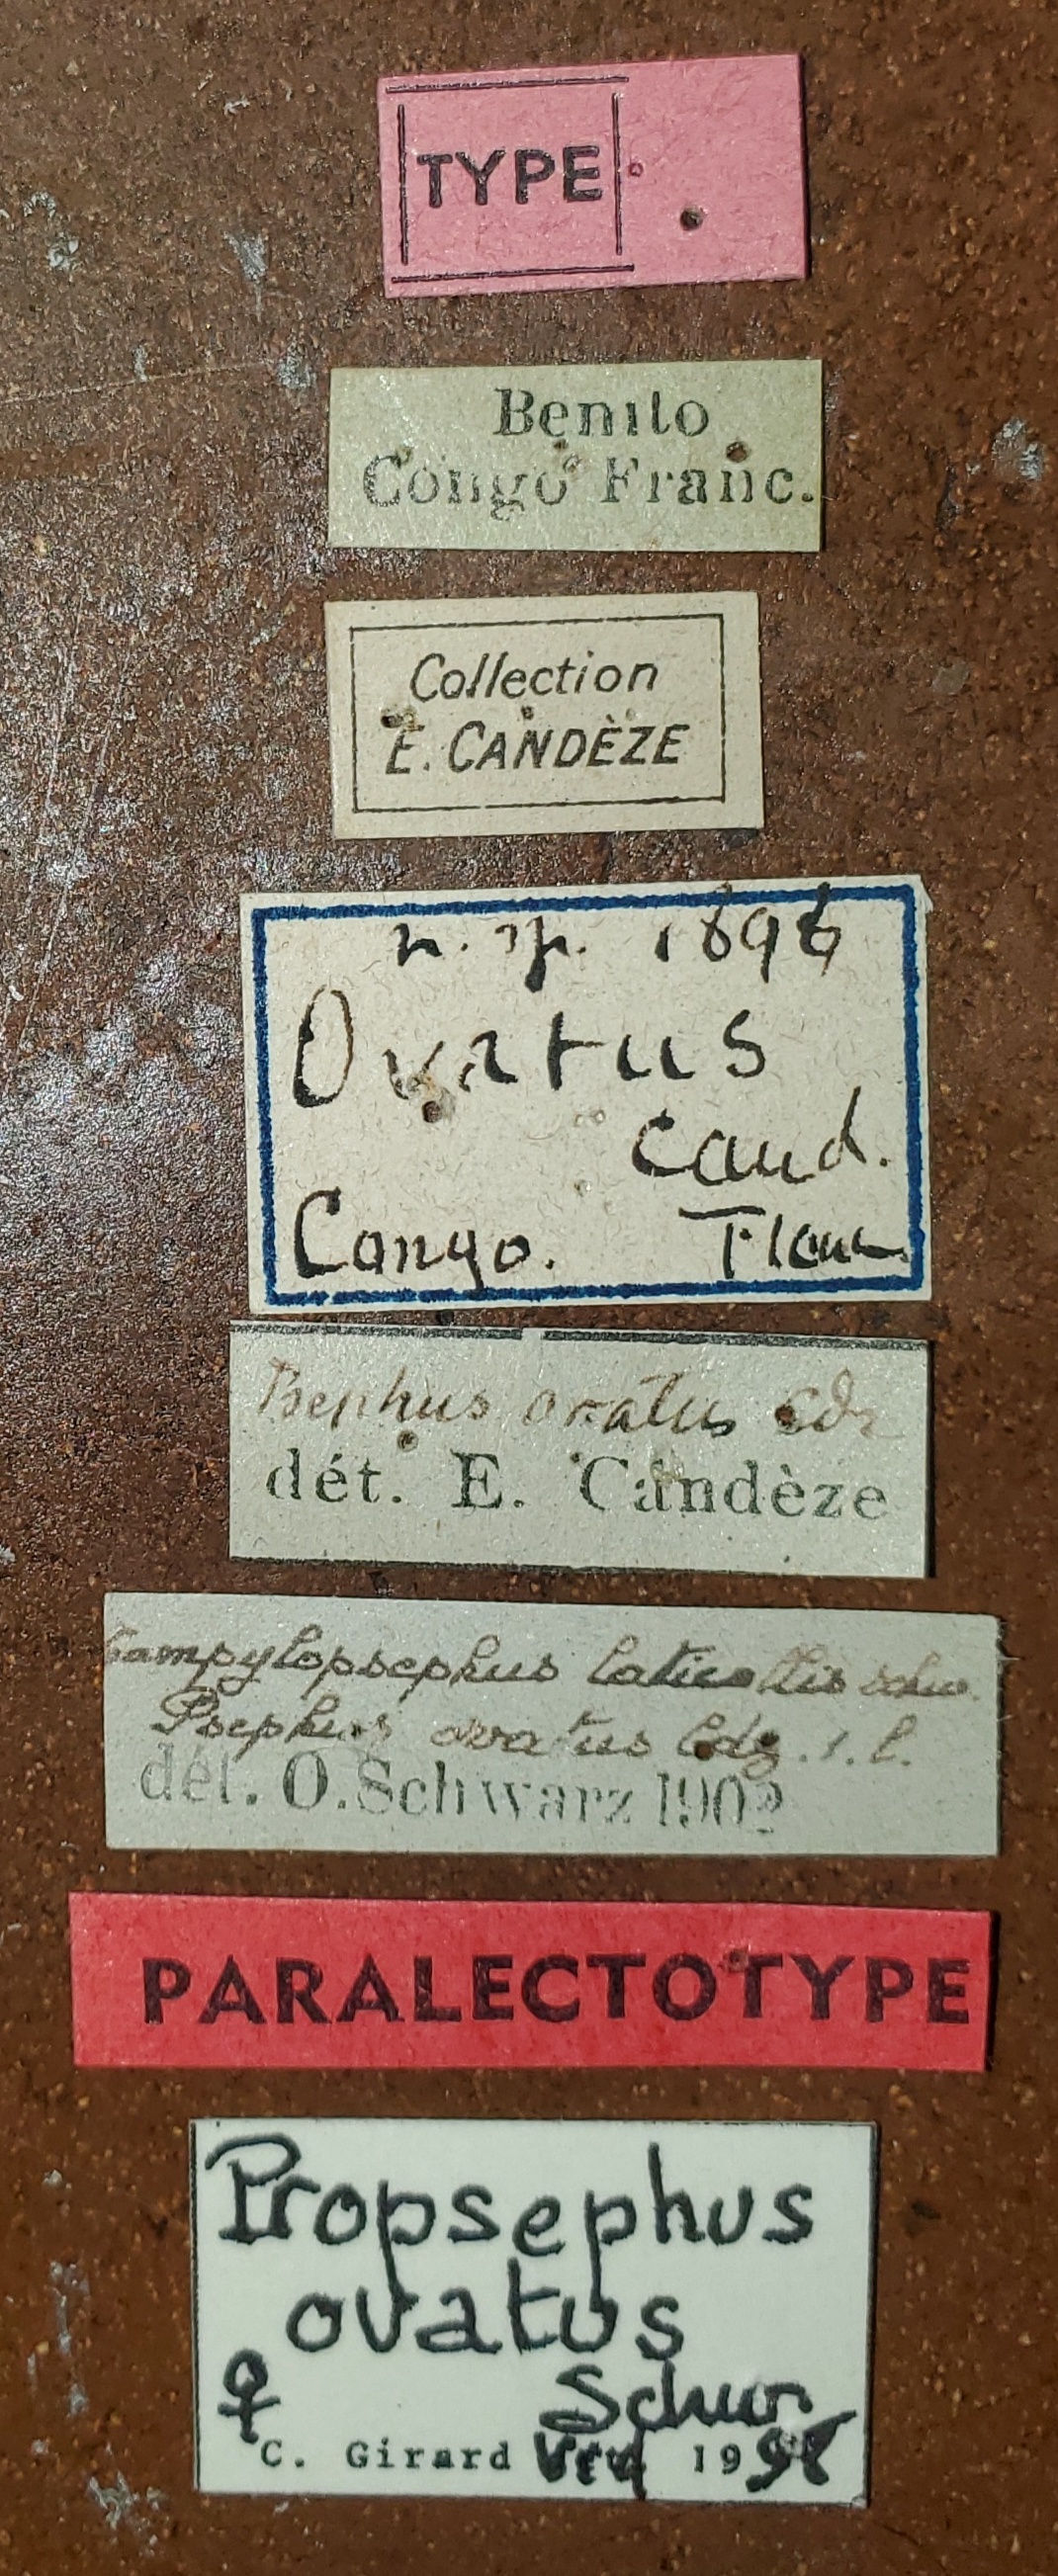 TYPE
Benito
Congo Franc.
Collection
E. CANDÈZE
n. sp. 1896
Ovatus
Cand.
Congo.
Psephus ovatus Cdz
dét. E. Candèze
Campylopsephus laticollis Schw.
Psephus ovatus Cdz. i. l.
dét. O. Schwarz 1902
PARALECTOTYPE
Propsephus
ovatus
♀ Schw.
C. Girard 1998